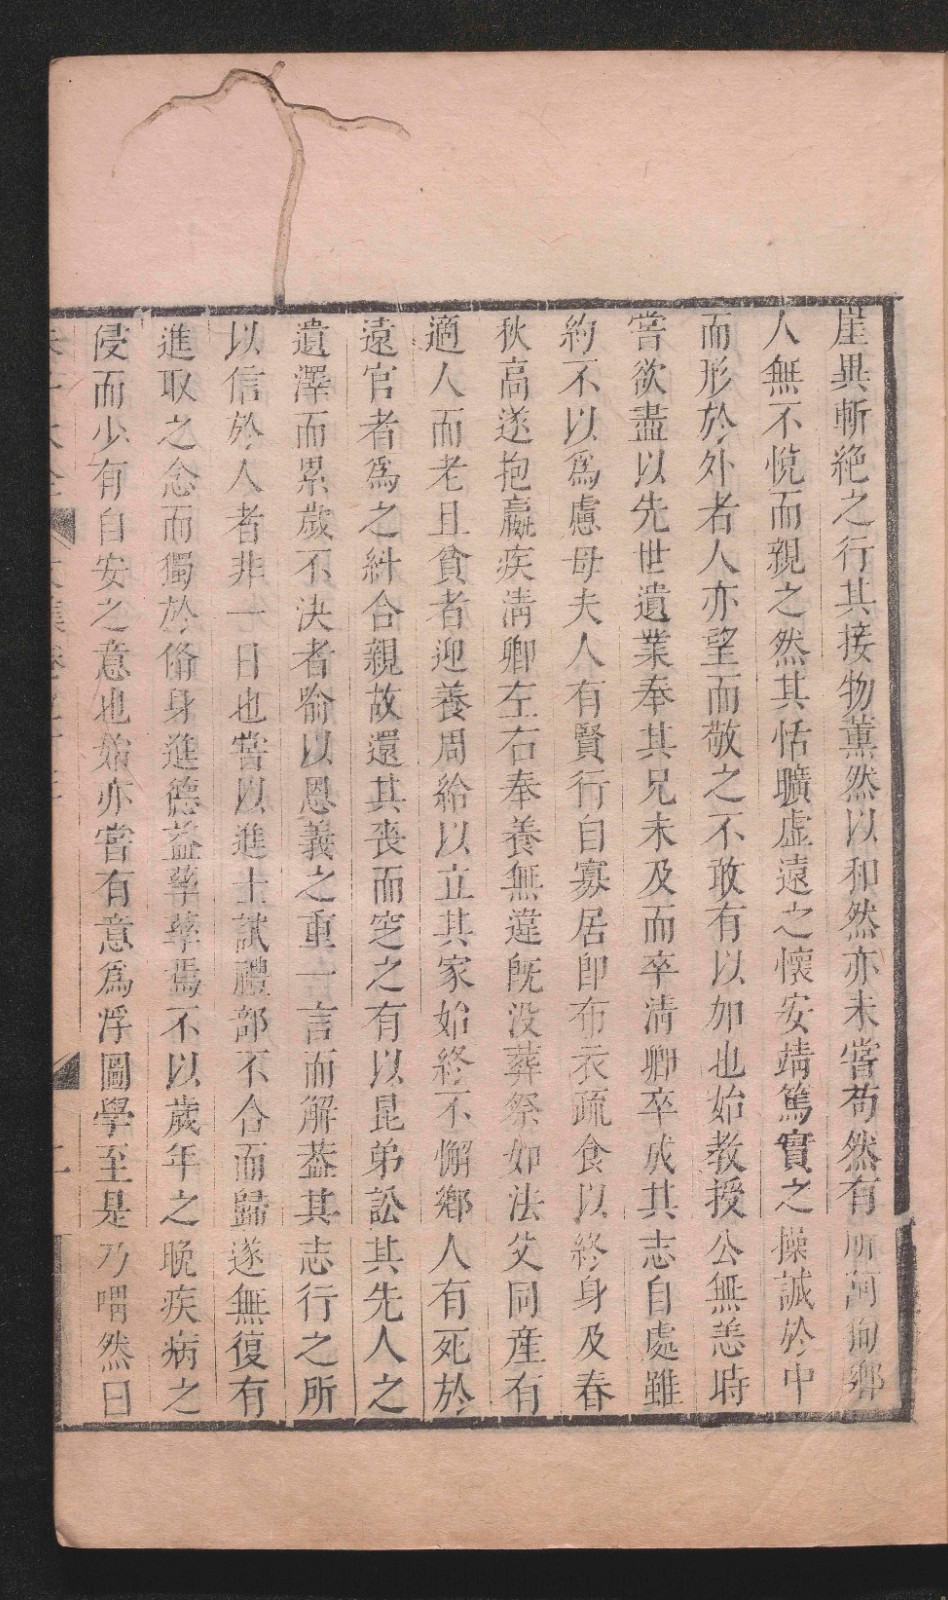 崖異斬絶之行其接物薫然以和然亦未嘗苟然有所詞徇鄉
人無不悅而親之然其恬曠虛遠之懷安靖篤實之操誠於中
而形於外者人亦望而敬之不敢有以加也始教授公無恙時
嘗欲盡以先世遺業奉其兄未及而卒淸卿卒成其志自處雖
約不以爲慮母夫人有賢行自寡居卽布衣疏食以終身及春
秋高遂抱羸疾淸卿左右奉養無違旣没葬祭如法父同産有
適人而老且貧者迎養周給以立其家始終不懈鄉人有死於
遠官者爲之紏合親故還其喪而窆之有以昆弟訟其先人之
遺澤而累歲不決者喻以恩義之重一言而解葢其志行之所
以信於人者非一日也嘗以進士試禮部不合而歸遂無復有
進取之念而獨於脩身進德益孳孳焉不以歲年之晚疾病之
侵而少有自安之意也始亦嘗有意爲浮圖學至是乃喟然曰